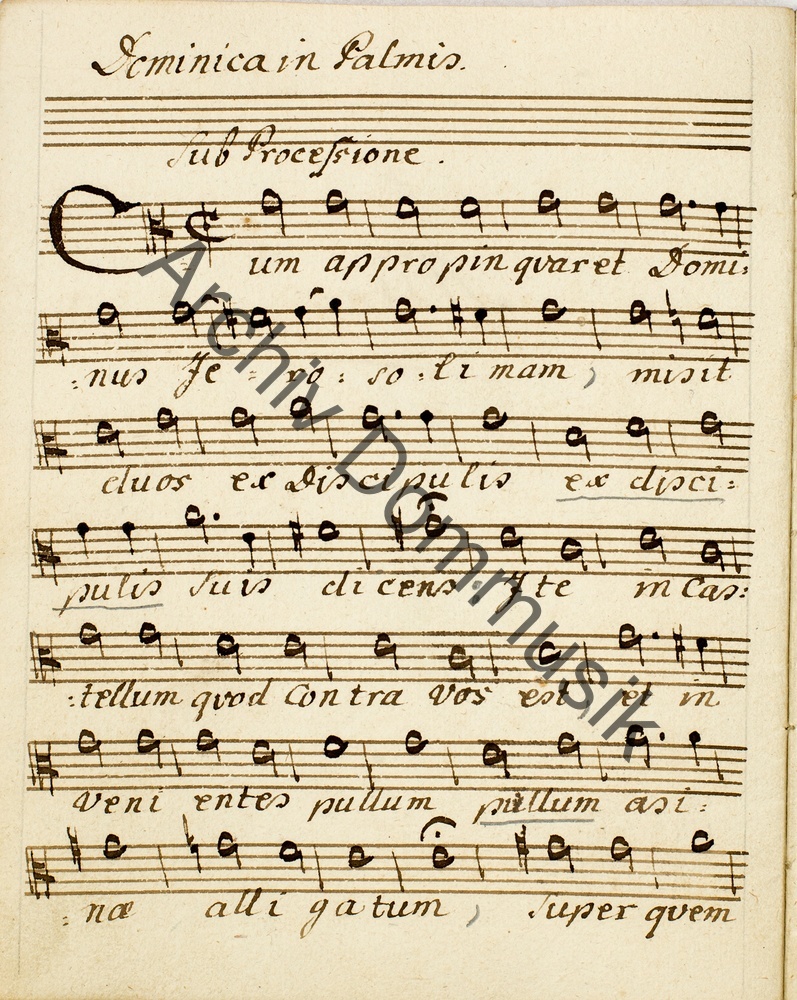 Dominica in Palmis.
Sub Processione.
Cum appropinqvaret Domi:
:nus Je - ro: so:li mam, misit
duos ex Discipulis ex disci:
pulis suis dicens. Ite in Cas:
:tellum qvod Contra Vos est et in
veni entes pullum pullum asi:
:næ alli gatum, super qvem
Archiv Dommusik